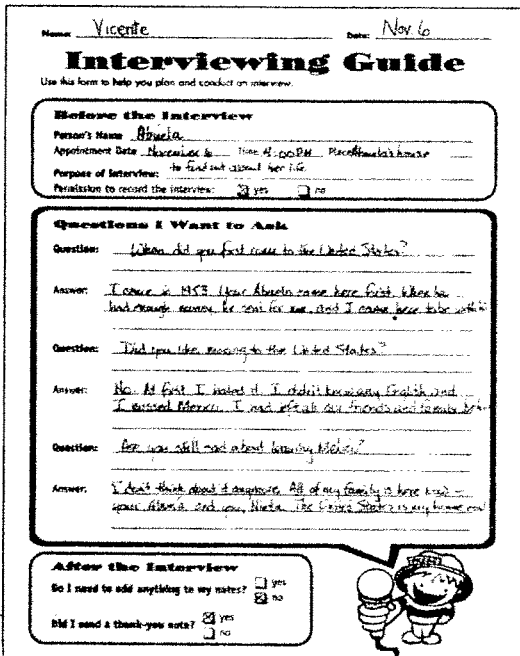 Name: Vicente Date: Nov. 6
Interviewing Guide
Use this form to help you plan and conduct an interview.
Before the Interview
Person's Name Abuela
Appointment Date November 6 Time 4:00 PM Place Abuela's house
Purpose of Interview: to find out about her life
Permission to record the interview: yes no
Questions I Want to Ask
Question: When did you first come to the United States?
Answer: I came in 1953. Your Abuelo came here first. When he
had enough money, he sent for me, and I came here to be with
Question: Did you like moving to the United States?
Answer: No. At first I hated it. I didn't know any English and
I missed Mexico. I had left all our friends and family
Question: Are you still sad about leaving Mexico?
Answer: I don't think about it anymore. All of my family is here now –
your and you, The United States is my home
After the Interview
Do I need to add anything to my notes? yes
no
Did I send a thank-you note? yes
no